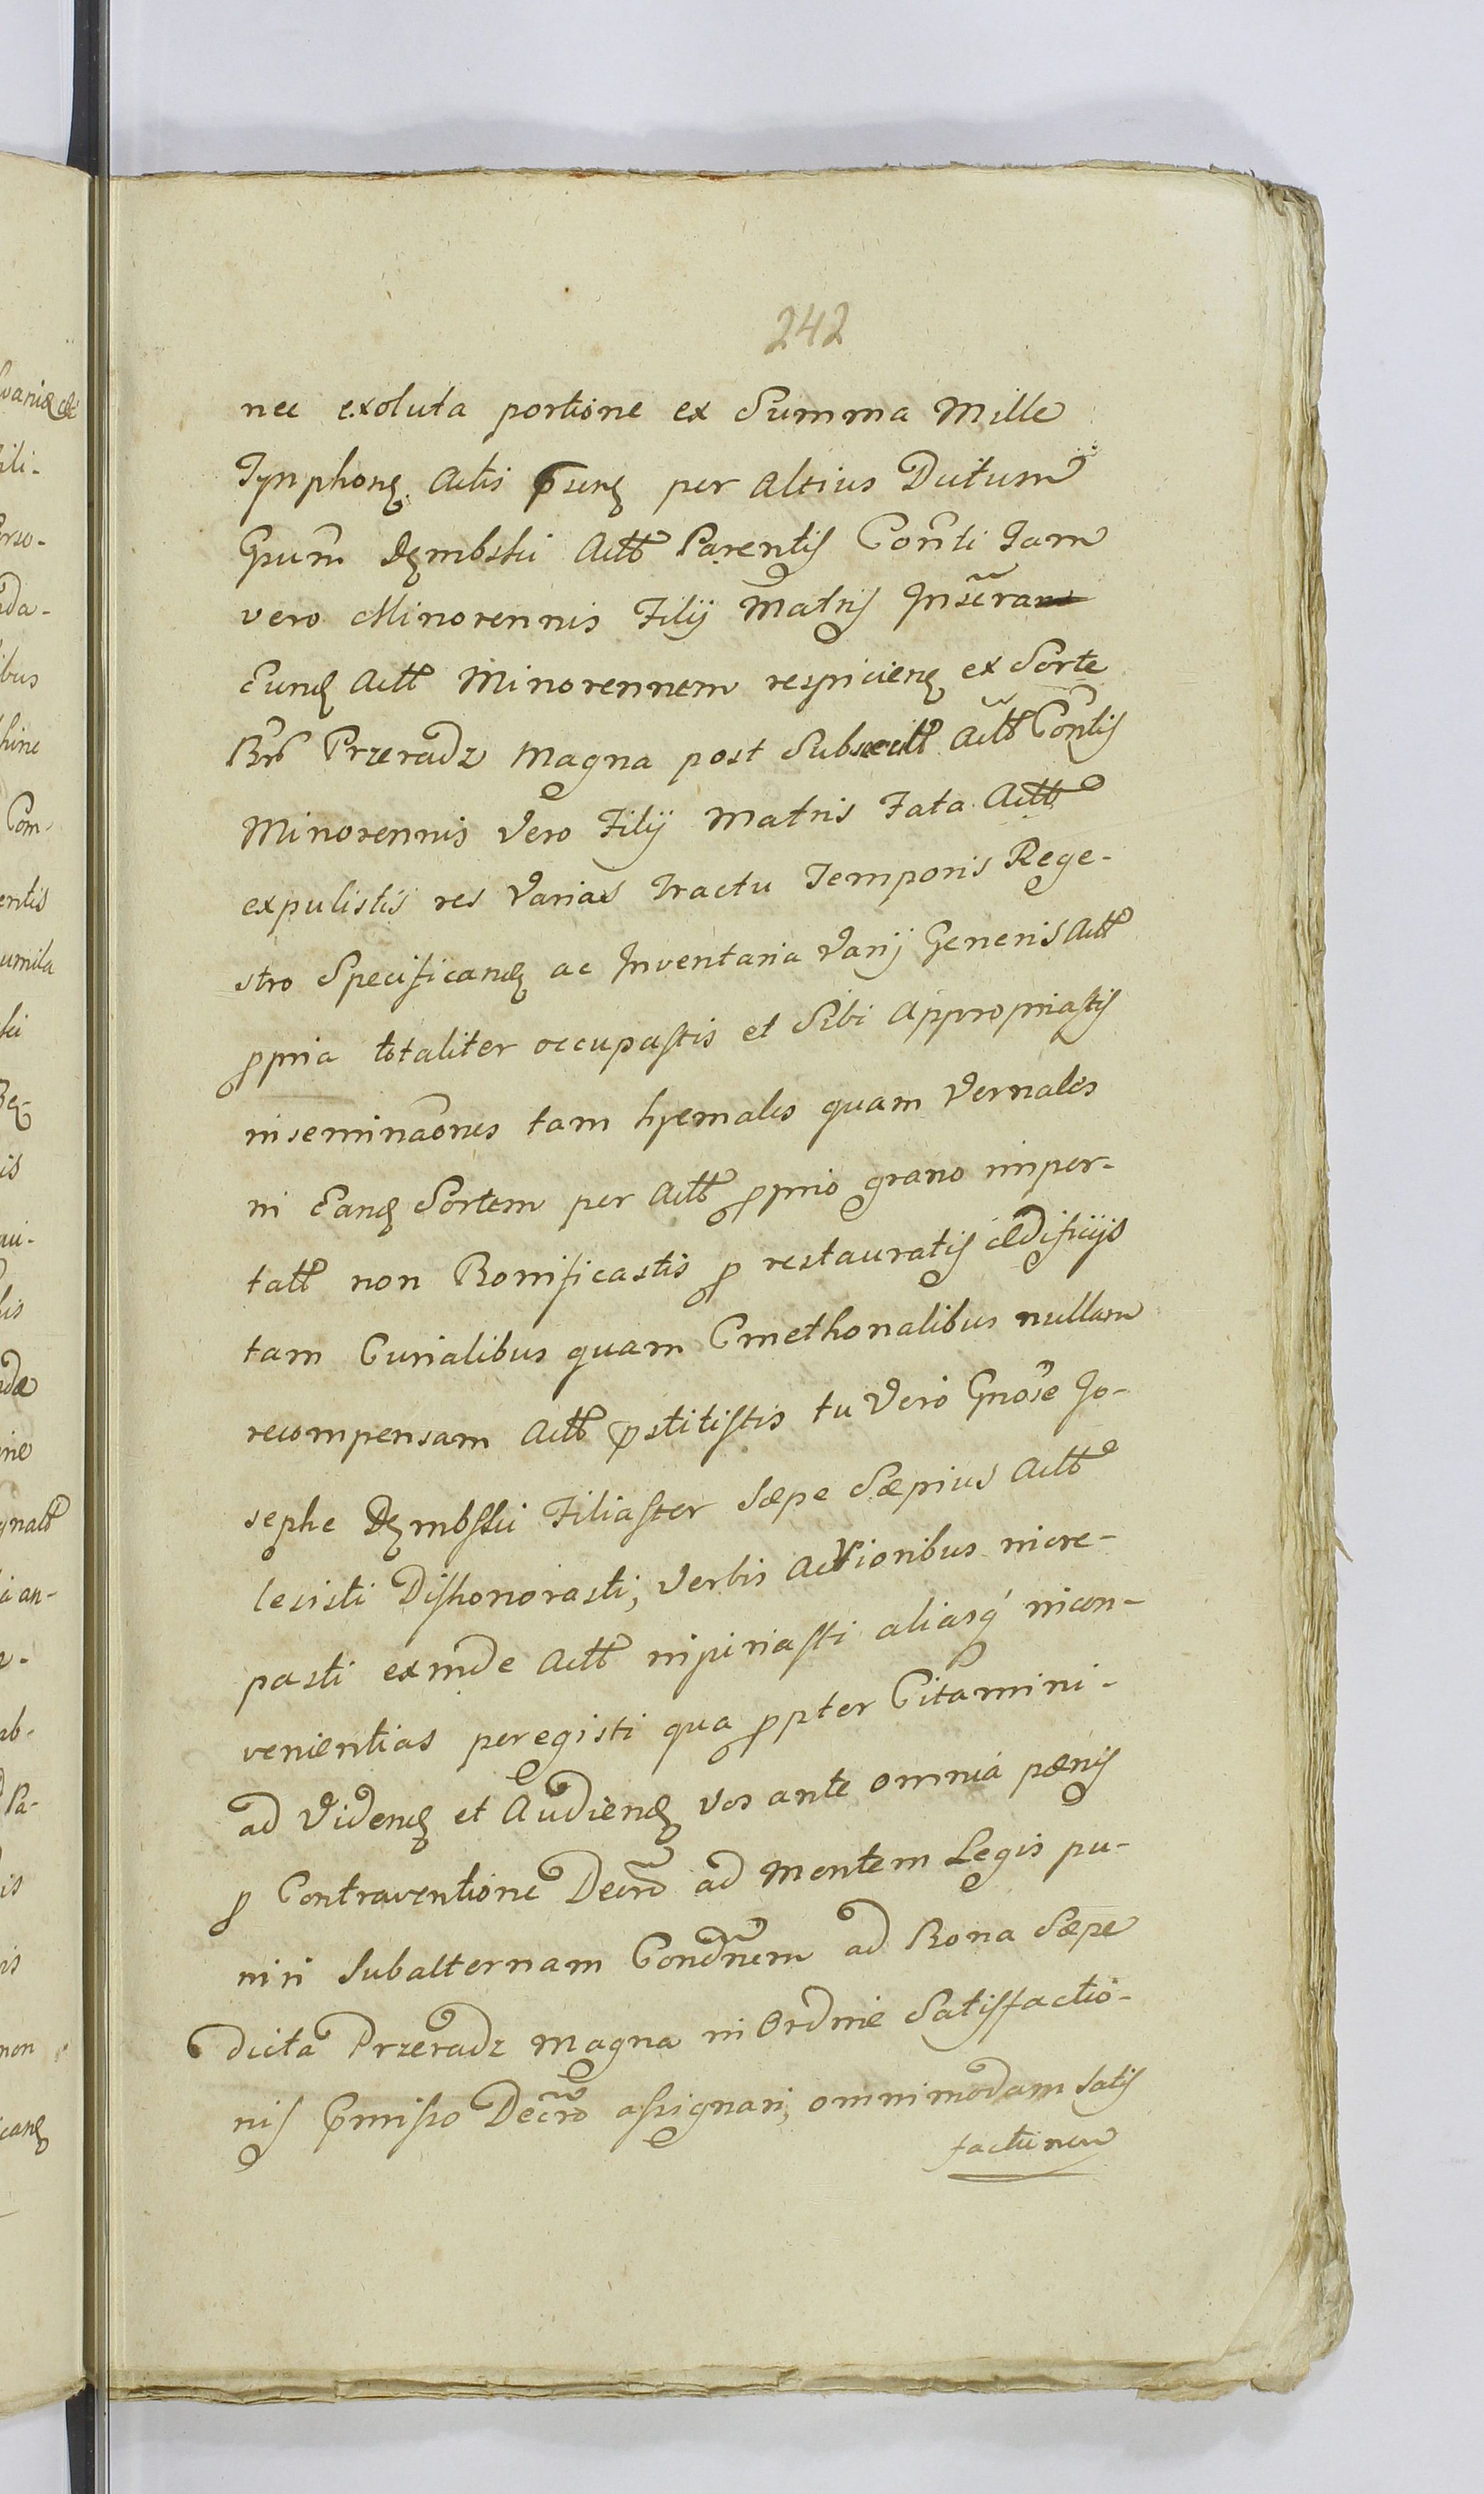 242
nec exoluta portione ex Summa Mille
Tynphonꝝ Actis pꝛsenꝝ per Altius Dictum
Gnum Dęmbski Actt Parentis Conti Jam
vero Minorennis Filij Matris Inscram
Eundꝫ Actt Minorennem respicienꝝ ex Sorte
Bnꝛ Przeradz Magna post Subsecutt Actt Contis
Minorennis Vero Filij Matris Fata Actt
expulistis res Varias Tractu Temporis Rege-
stro Specificandꝫ ac Inventaria Varij Generis Actt
ꝓpria totaliter occupastis et Sibi Appropriastis
inseminaones tam hyemales quam Vernales
in Eandꝫ Sortem per Actt ꝓprio grano imper-
tatt non Bonificastis ꝓ restauratis ædificijs
tam Curialibus quam Cmethonalibus nullam
recompensam Actt pꝛstitistis tu Vero Gnose Jo-
sephe Dęmbski Filiaster Sæpe Sæpius Actt
lesisti Dishonorasti, Verbis Actionibus incre-
pasti exinde Actt injuriasti aliasq' incon-
venientias peregisti qua ꝓpter Citamini
ad Videndꝫ et Audiendꝫ Vos ante omnia pænis
ꝓ Contraventione Decro ad Mentem Legis pu-
niri Subalternam Condnem ad Bona Sæpe
dicta Przeradz Magna in Ordine Satisfactio-
nis pꝛmisso Decro assignari, omnimodam satis
factionem